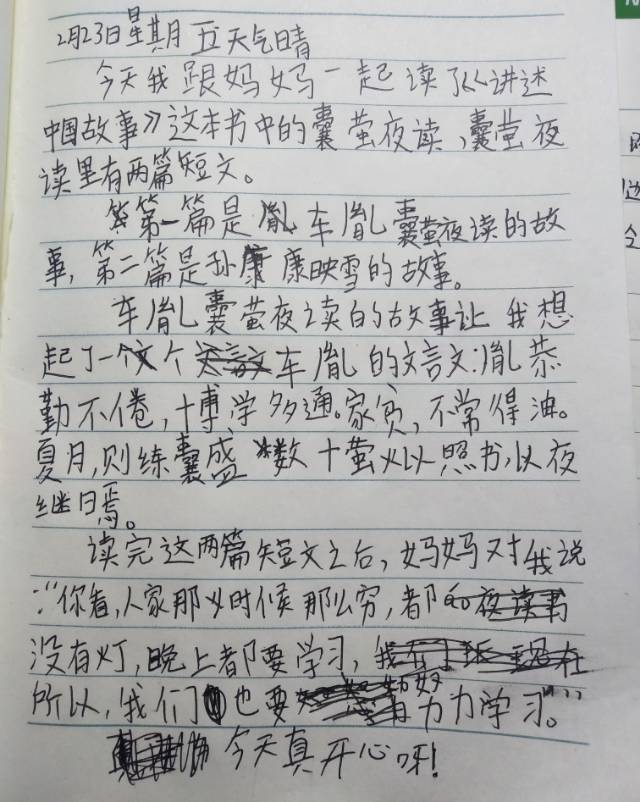 2月23日星期五天气晴
今天我跟妈妈一起读了《讲述
中国故事》这本书中的囊萤夜读,囊萤夜
读里有两篇短文。
第一篇是车胤囊萤夜读的故
事,第二篇是孙康映雪的故事。
车胤囊萤夜读的故事让我想
起了一个车胤的文言文:胤恭
勤不倦,博学多通。家贫,不常得油。
夏月,则练囊盛数十萤火以照书,以夜
继日焉。
读完这两篇短文之后,妈妈对我说
:“你看,人家那个时候那么穷,都
没有灯,晚上都要学习,
所以,我们也要好好努力学习。”
今天真开心呀!